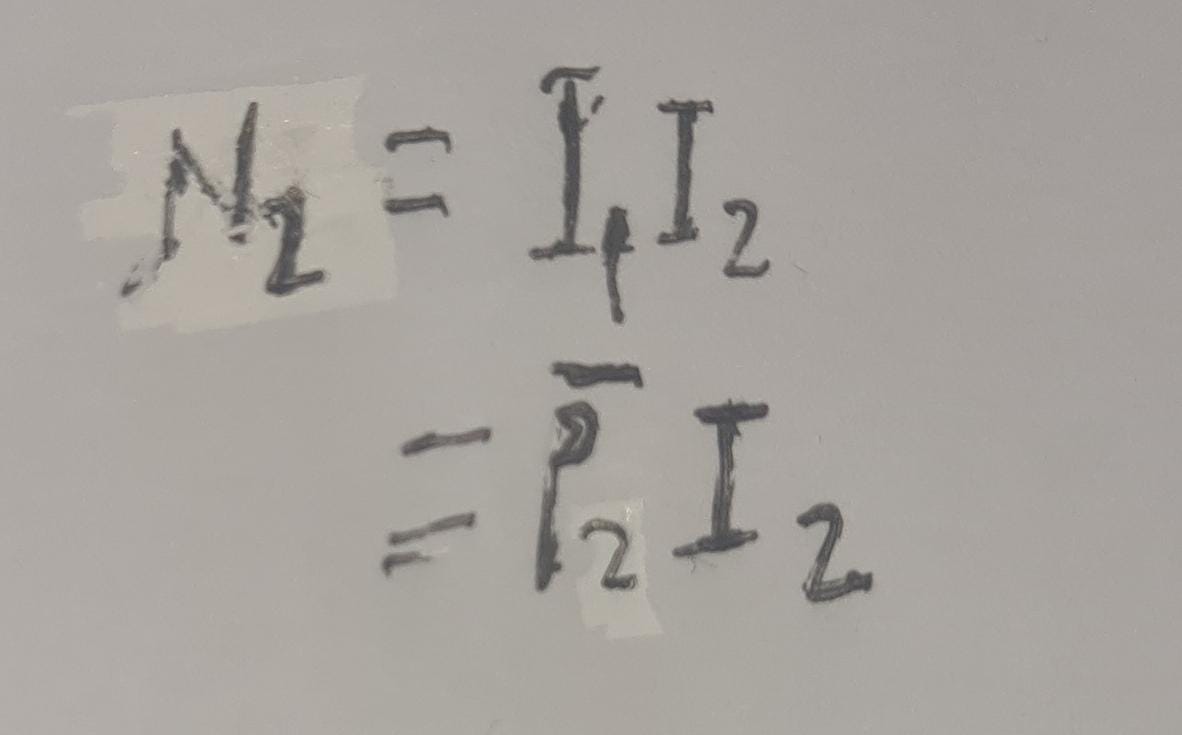 N₂ = I₁ I₂
= P̄₂ I₂